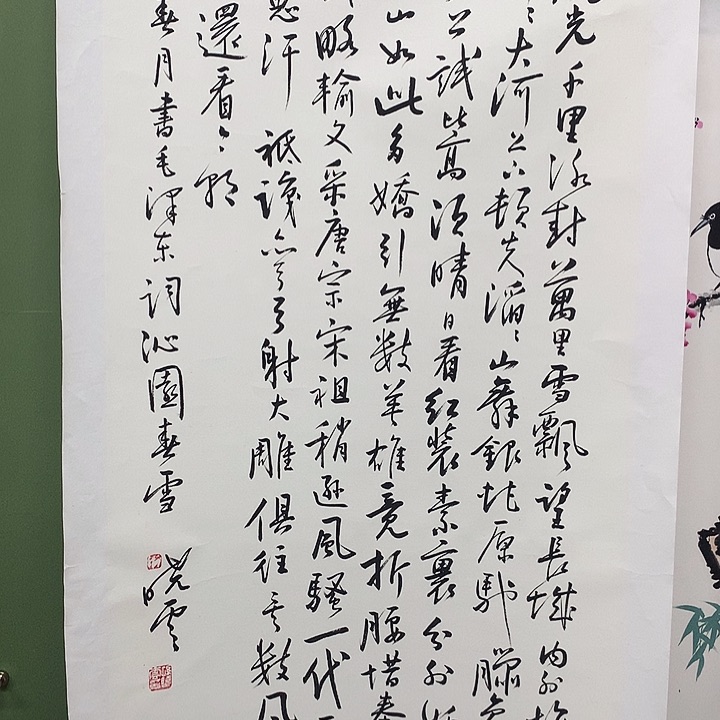 光千里冰封萬里雪飄望長城內外
大河上下頓失滔〻山舞銀蛇原馳臘象
公試比高須晴日看紅裝素裹分外
山如此多嬌引無數英雄競折腰惜秦
略輸文采唐宗宋祖稍遜風騷一代
汗祗識彎弓射大雕俱往矣數風
還看今朝
春月書毛澤东詞沁園春雪
晓雲